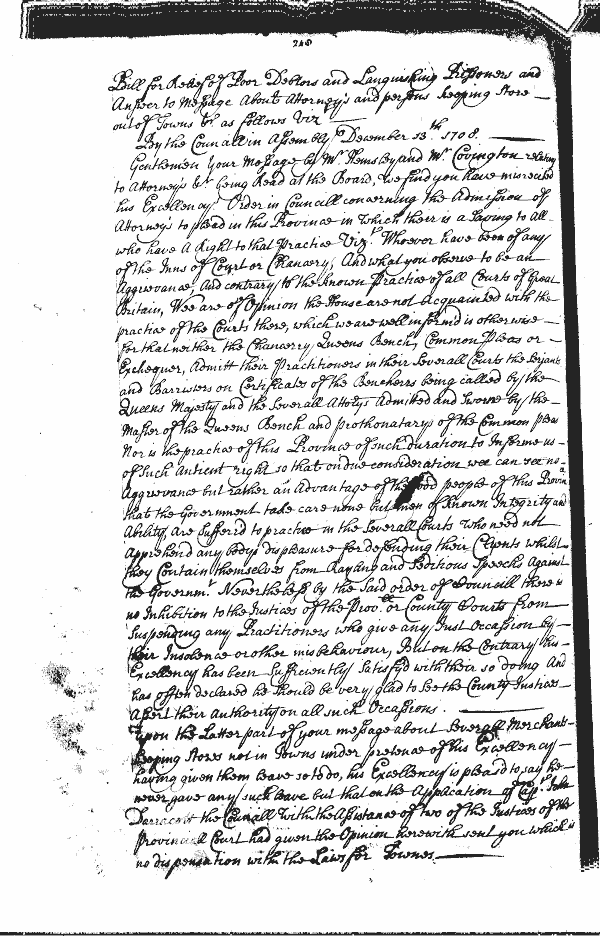 Bill for Relief of Poor Debtors and Languishing Prissoners and
Answer to Message About Attorney's and persons keeping Store
out of Towns &c as follows Viz
By the Councill in Assembly December 13th 1708.
Gentlemen your Message by Mr. Hemsley and Mr. Covington relating
to Attorneys &c. being Read at the Board, we find you have misrecited
his Excellency's Order in Councill concerning the Admission of
Attorneys to plead in this Province in which their is a Saving to all
who have A Right to that Practice Vizt. Whoever have been of any
of the Inns of Court or Chancery, And what you observe to be an
Aggreivance, And contrary to the known Practice of all Courts of Great
Britain, Wee are of Opinion the House are not Acquainted with the
practice of the Courts there, which we are well inform'd is otherwise
for that neither the Chancerry, Queens Bench, Common Pleas or
Exchequer, Admitt their Practitioners in their Severall Courts the Serjants
and Barristers on Certificates of the Benchers being called by the
Queens Majesty and the Severall Attorys Admitted and Sworne by the
Master of the Queens Bench and prothonatarys of the Common pleas
Nor is the practice of this Province of such duration to Informe us
of such Antient right so that on due consideration wee can see no
Aggrevance but rather an Advantage of the Good people of this Provin
that the Government take care none but men of Known Integrity and
Ability, are Sufferd to practice in the Severall Courts who need not
Apprehend any bodys displeasure for defending their Clients whilst
they Contain themselves from Rayling and Seditious Speechs Against
the Governmt. Neverthelesss by the Said order of Councill there is
no Inhibition to the Justices of the Prov. or County Courts from
Suspending any Practitioners who give any Just Occassion by
their Insolence or other misbehaviour, But on the Contrary his
Excellency has been Sufficiently Satisfyd with their so doing And
has often declared he Should be very glad to See the County Justices
Assert their Authority on all such Occassions.
Upon the Latter part of your message about Severall Merchants
keeping Stores not in Towns under pretence of his Excellency
having given them leave so to do, his Excellency is pleasd to say he
never gave any such leave but that on the Application of Capt. John
the Councill with the Assistance of two of the Justices of the
Provinciall Court had given the Opinion herewith sent you which is
no dispensation with the Laws for Townes